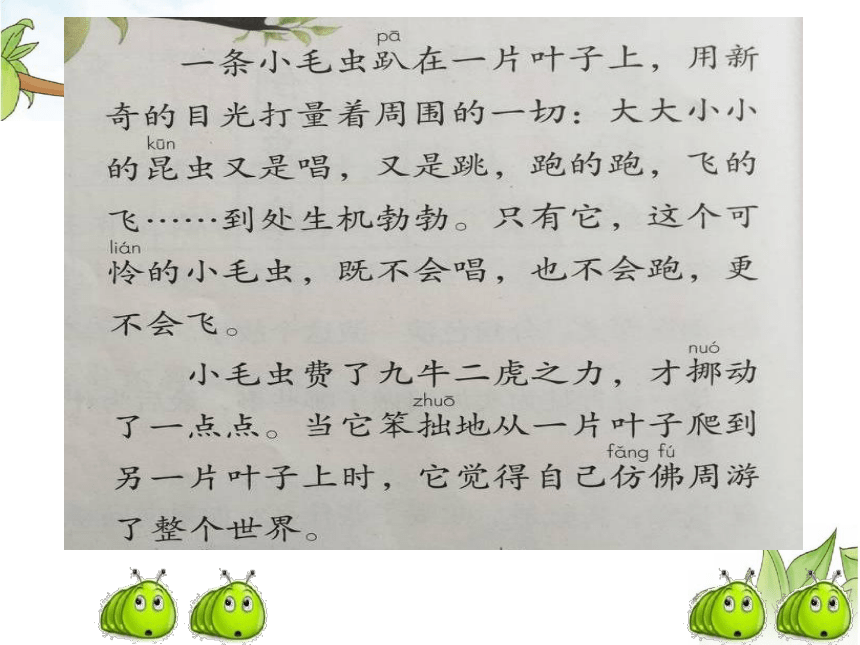 pā
一条小毛虫趴在一片叶子上，用新
奇的目光打量着周围的一切：大大小小
kūn
的昆虫又是唱，又是跳，跑的跑，飞的
飞……到处生机勃勃。只有它，这个可
lián
怜的小毛虫，既不会唱，也不会跑，更
不会飞。
nuó
小毛虫费了九牛二虎之力，才挪动
zhuō
了一点点。当它笨拙地从一片叶子爬到
fǎng fú
另一片叶子上时，它觉得自己仿佛周游
了整个世界。